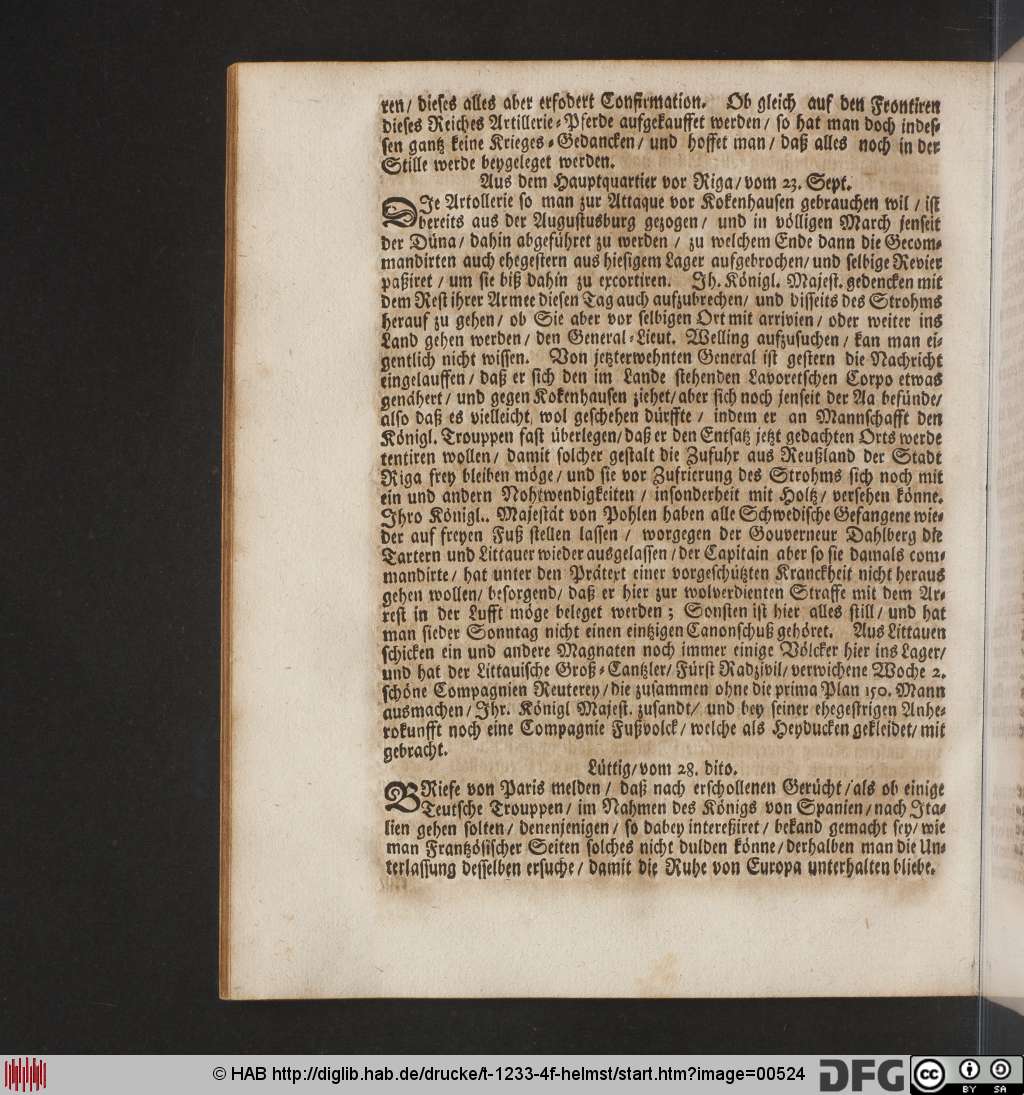 ren/ dieses alles aber erfodert Confirmation. Ob gleich auf den Frontiren
dieses Reiches Artillerie-Pferde aufgekauffet werden/ so hat man doch indes-
sen gantz keine Krieges-Gedancken/ und hoffet man/ daß alles noch in der
Stille werde beygeleget werden.
Aus dem Hauptquartier vor Riga/ vom 23. Sept.
DIe Artollerie so man zur Attaque vor Kokenhausen gebrauchen wil/ ist
bereits aus der Augustusburg gezogen/ und in völligen March jenseit
der Düna/ dahin abgeführet zu werden/ zu welchem Ende dann die Gecom-
mandirten auch ehegestern aus hiesigem Lager aufgebrochen/ und selbige Revier
paßiret/ um sie biß dahin zu excortiren. Jh. Königl. Majest. gedencken mit
dem Rest ihrer Armee diesen Tag auch aufzubrechen/ und disseits des Strohms
herauf zu gehen/ ob Sie aber vor selbigen Ort mit arrivien/ oder weiter ins
Land gehen werden/ den General-Lieut. Welling aufzusuchen/ kan man ei-
gentlich nicht wissen. Von jetzterwehnten General ist gestern die Nachricht
eingelauffen/ daß er sich den im Lande stehenden Lavoretschen Corpo etwas
genähert/ und gegen Kokenhausen ziehet/ aber sich noch jenseit der Aa befünde/
also daß es vielleicht, wol geschehen dürffte/ indem er an Mannschafft den
Königl. Trouppen fast überlegen/ daß er den Entsatz jetzt gedachten Orts werde
tentiren wollen/ damit solcher gestalt die Zufuhr aus Reußland der Stadt
Riga frey bleiben möge/ und sie vor Zufrierung des Strohms sich noch mit
ein und andern Nohtwendigkeiten/ insonderheit mit Holtz/ versehen könne.
Jhro Königl.. Majestät von Pohlen haben alle Schwedische Gefangene wie-
der auf freyen Fuß stellen lassen/ worgegen der Gouverneur Dahlberg die
Tartern und Littauer wieder ausgelassen/ der Capitain aber so sie damals com-
mandirte/ hat unter den Prätext einer vorgeschützten Kranckheit nicht heraus
gehen wollen/ besorgend/ daß er hier zur wolverdienten Straffe mit dem Ar-
rest in der Lufft möge beleget werden; Sonsten ist hier alles still/ und hat
man sieder Sonntag nicht einen eintzigen Canonschuß gehöret. Aus Littauen
schicken ein und andere Magnaten noch immer einige Völcker hier ins Lager/
und hat der Littauische Groß-Cantzler/ Fürst Radzivil/ verwichene Woche 2.
schöne Compagnien Reuterey/ die zusammen ohne die prima Plan 150. Mann
ausmachen/ Jhr. Königl Majest. zusandt/ und bey seiner ehegestrigen Anhe-
rokunfft noch eine Compagnie Fußvolck/ welche als Heyducken gekleidet/ mit
gebracht.
Lüttig/ vom 28. dito.
BRiefe von Paris melden/ daß nach erschollenen Gerücht/ als ob einige
Teutsche Trouppen/ im Nahmen des Königs von Spanien/ nach Jta-
lien gehen solten/ denenjenigen/ so dabey intereßiret/ bekand gemacht sey/ wie
man Frantzösischer Seiten solches nicht dulden könne/ derhalben man die Un-
terlassung desselben ersuche/ damit die Ruhe von Europa unterhalten bliebe.
© HAB http://diglib.hab.de/drucke/t-1233-4f-helmst/start.htm?image=00524
DFG
cc BY SA